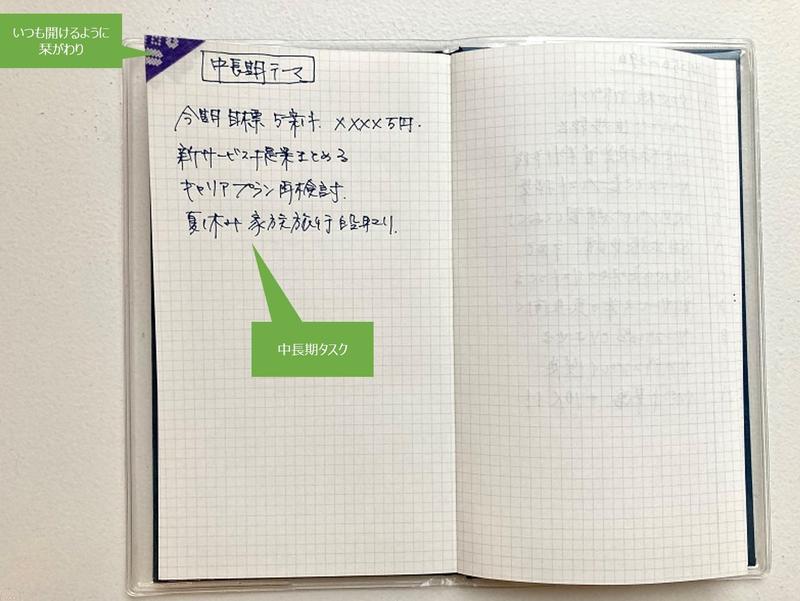 いつも開けるように
栞がわり
中長期テーマ
今期目標 5案件. XXXX万円.
新サービス提案まとめる
キャリアプラン再検討.
夏休み 家族旅行段取り.
中長期タスク